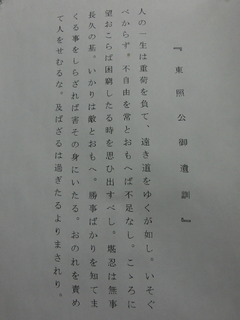 『東照公御遺訓』
人の一生は重荷を負て、遠き道をゆくが如し。いそぐ
べからず。不自由を常とおもへば不足なし。こゝろに
望おこらば困窮したる時を思ひ出すべし。堪忍は無事
長久の基。いかりは敵とおもへ。勝事ばかりを知てま
くる事をしらざれば害その身にいたる。おのれを責め
て人をせむるな。及ばざるは過ぎたるよりまされり。